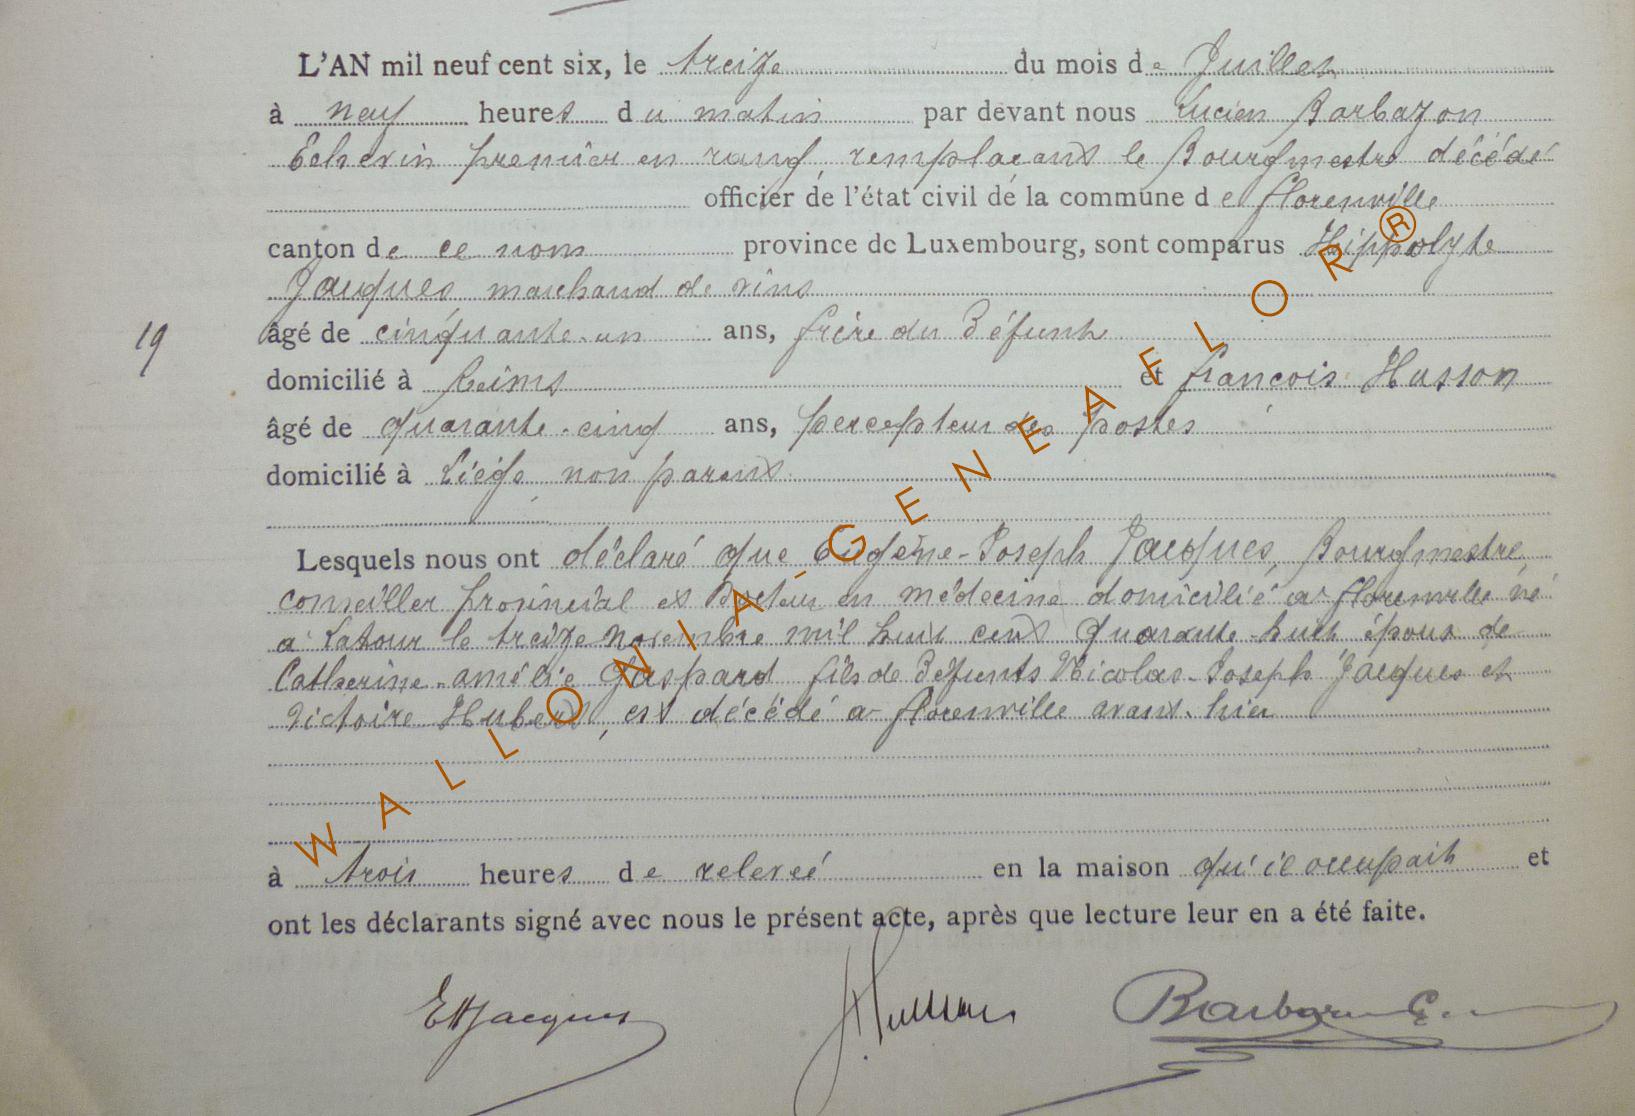 L'AN mil neuf cent six, le treize du mois de Juillet
à neuf heures du matin par devant nous Lucien Barbazon
Echevin premier en rang, remplacant le Bourgmestre décédé
officier de l'état civil de la commune de Florenville
canton de ce nom province de Luxembourg, sont comparus Hippolyte
Jacques marchand de vins
19 âgé de cinquante-un ans, frère du Défunt
domicilié à Reims et francois Husson
âgé de quarante-cinq ans, percepteur des postes
domicilié à Liége non parent
Lesquels nous ont déclaré que Eugène-Joseph Jacques, Bourgmestre,
conseiller provincial et Docteur en médecine domicilié a florenville né
a Latour le treize novembre mil huit cent quarante-huit, époux de
Catherine-amélie Gaspard fils de Défunts Nicolas-Joseph Jacques et
Victoire Hubert, est décédé a florenville avant-hier
à trois heures de releveé en la maison qu'il occupait et
ont les déclarants signé avec nous le présent acte, après que lecture leur en a été faite.
EHJacques Husson
WALLONIA-GENEAFLOR®